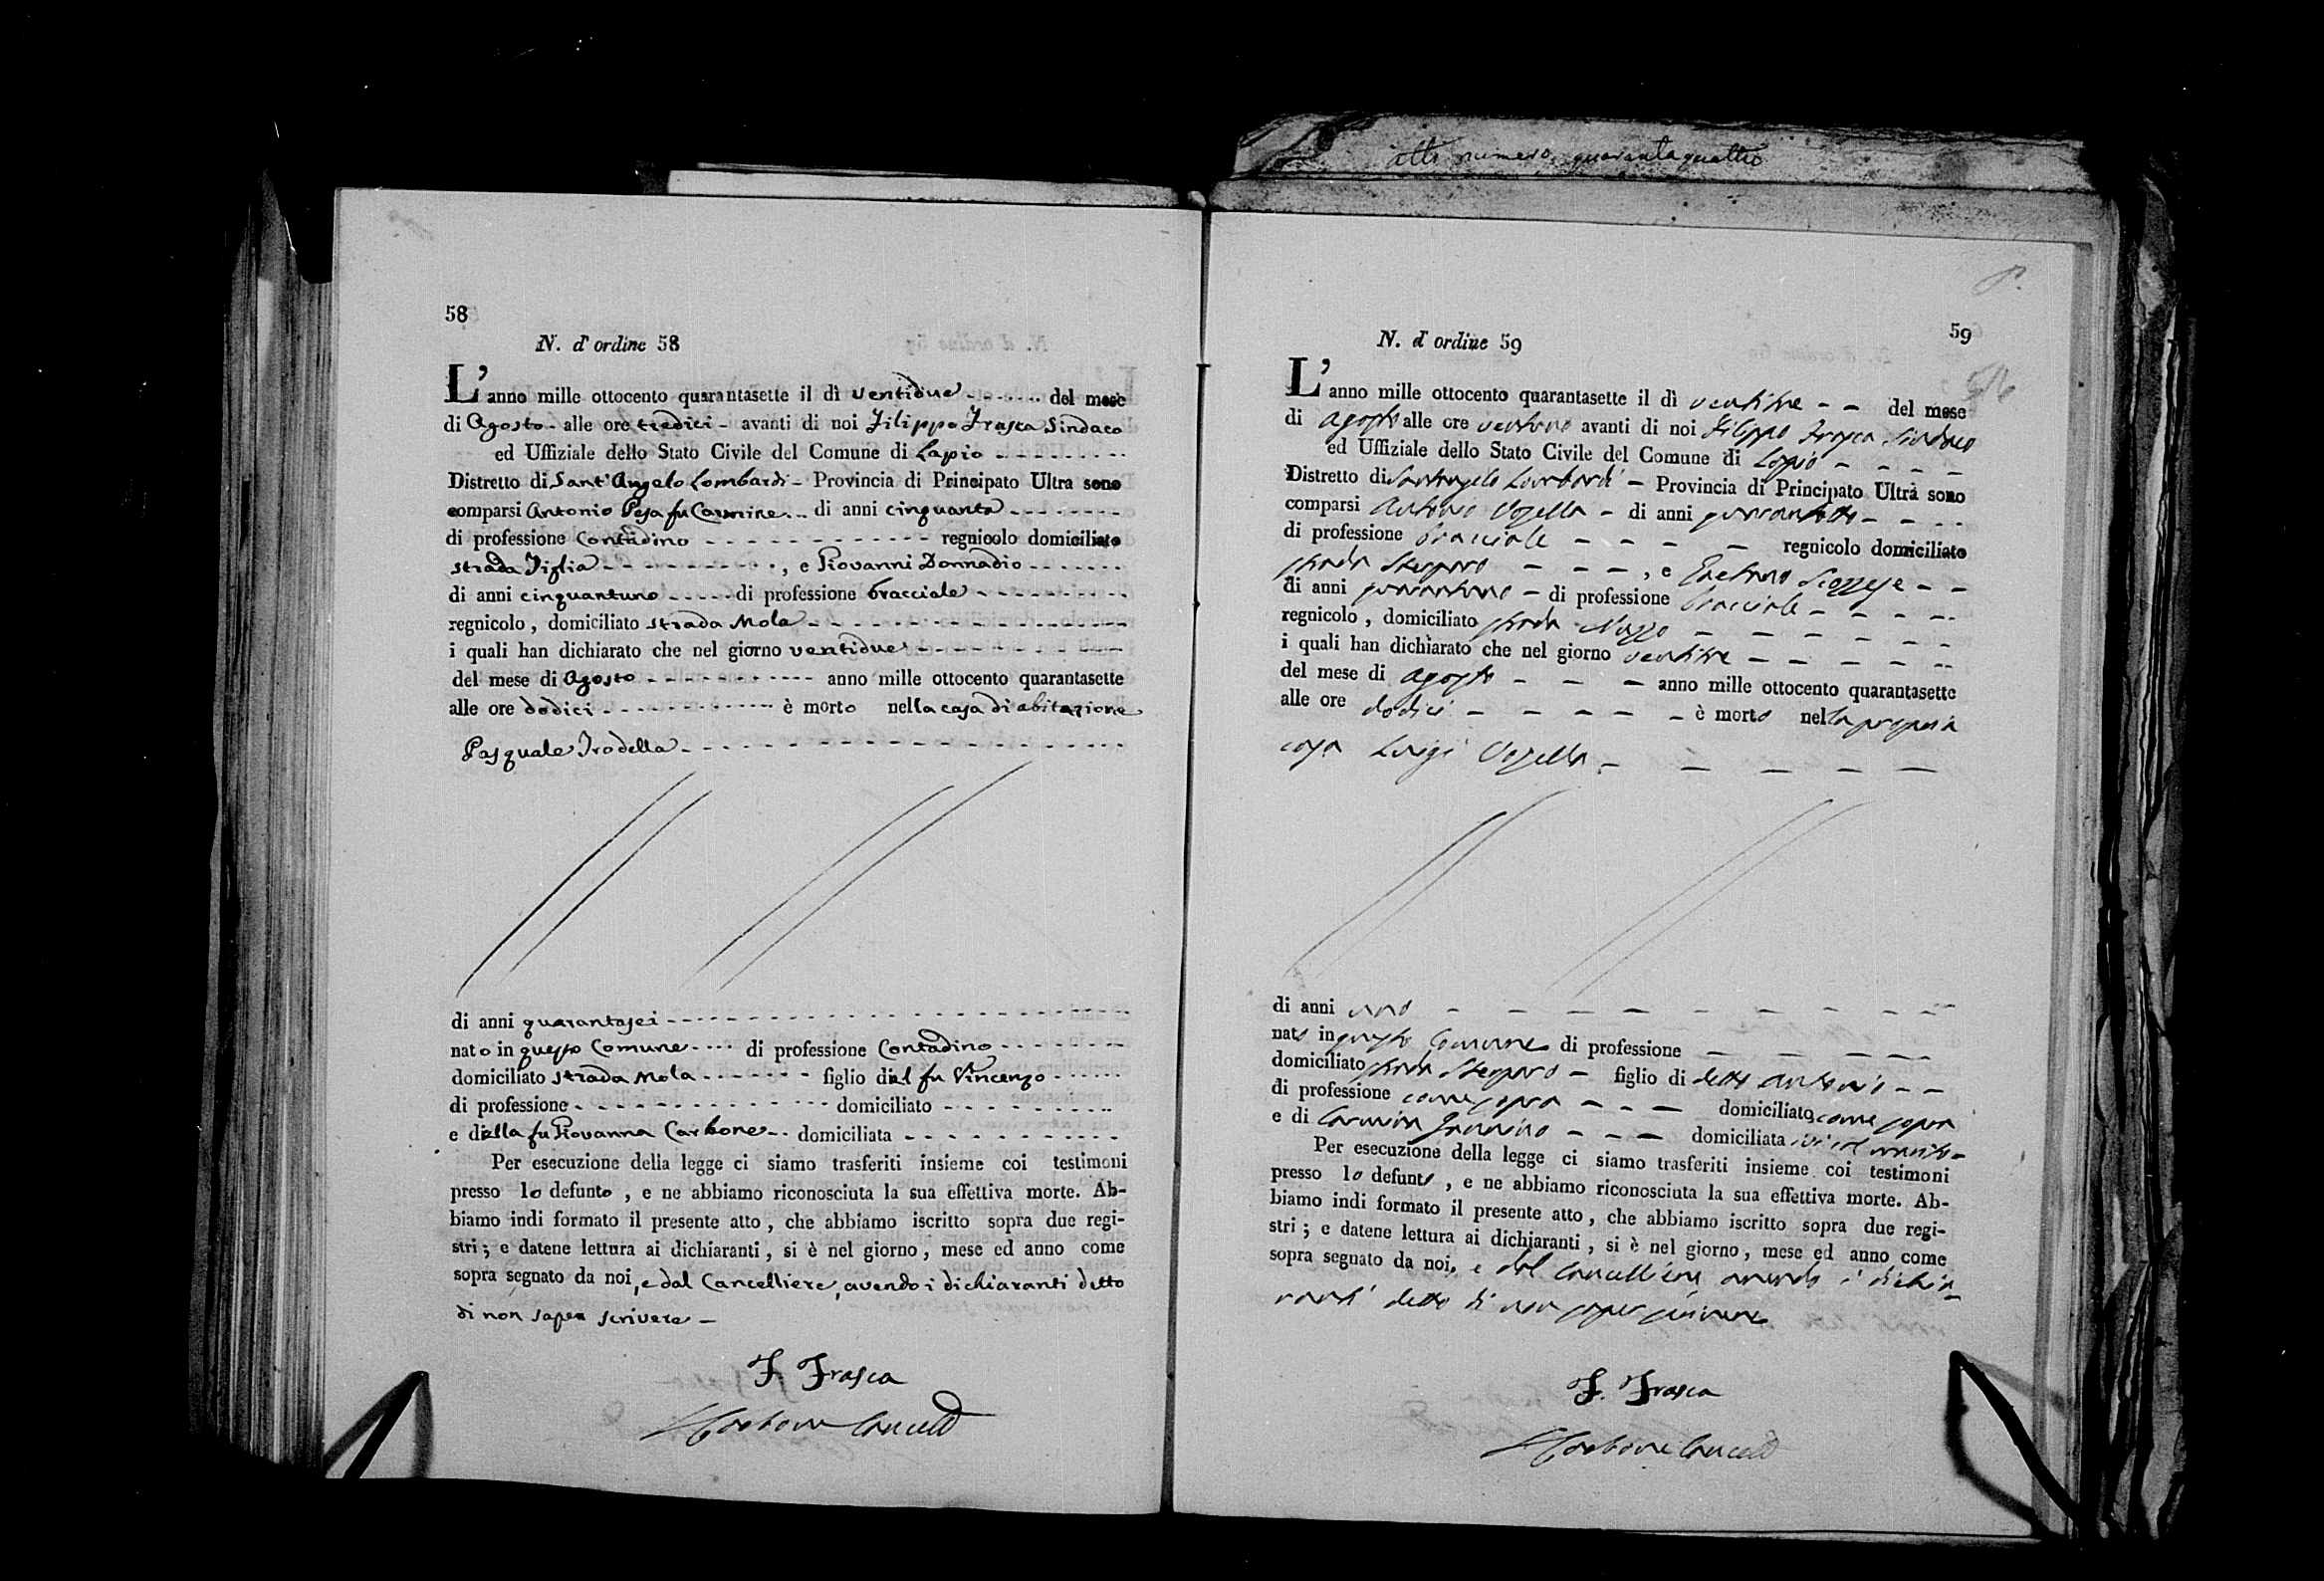 atto numero quarantaquattro
58
N. d'ordine 58
L'anno mille ottocento quarantasette il dì ventidue del mese
di Agosto alle ore tredici avanti di noi Filippo Frasca Sindaco
ed Uffiziale dello Stato Civile del Comune di Lapio
Distretto di Sant'Angelo Lombardi Provincia di Principato Ultra sono
comparsi Antonio Pesa fu Carmine di anni cinquanta
di professione Contadino regnicolo domiciliato
strada Figlia, e Giovanni Donnadio
di anni cinquantuno di professione bracciale
regnicolo, domiciliato strada Mola
i quali han dichiarato che nel giorno ventidue
del mese di Agosto anno mille ottocento quarantasette
alle ore dodici è morto nella casa di abitazione
Pasquale Trodella
di anni quarantasei
nato in questo Comune di professione Contadino
domiciliato strada Mola figlio del fu Vincenzo
di professione domiciliato
e della fu Giovanna Carbone domiciliata
Per esecuzione della legge ci siamo trasferiti insieme coi testimoni
presso lo defunto, e ne abbiamo riconosciuta la sua effettiva morte. Ab-
biamo indi formato il presente atto, che abbiamo iscritto sopra due regi-
stri; e datene lettura ai dichiaranti, si è nel giorno, mese ed anno come
sopra segnato da noi, e dal Cancelliere, avendo i dichiaranti detto
di non saper scrivere
F. Frasca
Carbone Cancell
59
N. d'ordine 59
L'anno mille ottocento quarantasette il dì ventitre del mese
di agosto alle ore ventuno avanti di noi Filippo Frasca Sindaco
ed Uffiziale dello Stato Civile del Comune di Lapio
Distretto di Santangelo Lombardi Provincia di Principato Ultra sono
comparsi Antonio Vozella di anni quarantotto
di professione bracciale regnicolo domiciliato
strada, e Gaetano Scozzese
di anni quarantuno di professione bracciale
regnicolo, domiciliato strada
i quali han dichiarato che nel giorno ventitre
del mese di agosto anno mille ottocento quarantasette
alle ore dodici è morto nella propria
casa Luigi Vozella
di anni uno
nato in questo Comune di professione
domiciliato strada figlio di detto Antonio
di professione come sopra domiciliato come sopra
e di Carmina domiciliata ivi col marito
Per esecuzione della legge ci siamo trasferiti insieme coi testimoni
presso lo defunto, e ne abbiamo riconosciuta la sua effettiva morte. Ab-
biamo indi formato il presente atto, che abbiamo iscritto sopra due regi-
stri; e datene lettura ai dichiaranti, si è nel giorno, mese ed anno come
sopra segnato da noi, e dal Cancelliere avendo i dichia-
ranti detto di non saper scrivere
F. Frasca
Carbone Cancell